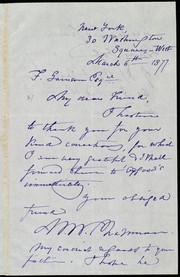 New York,
30 Washington
Square, West
March 6th 1877
F. Esqre
My dear Friend,
I hasten
to thank you for your
kind courtesy, for which
I am very grateful & shall
forward them to
immediately.
Your obliged
friend
My cordial regards to your
father. I hope he